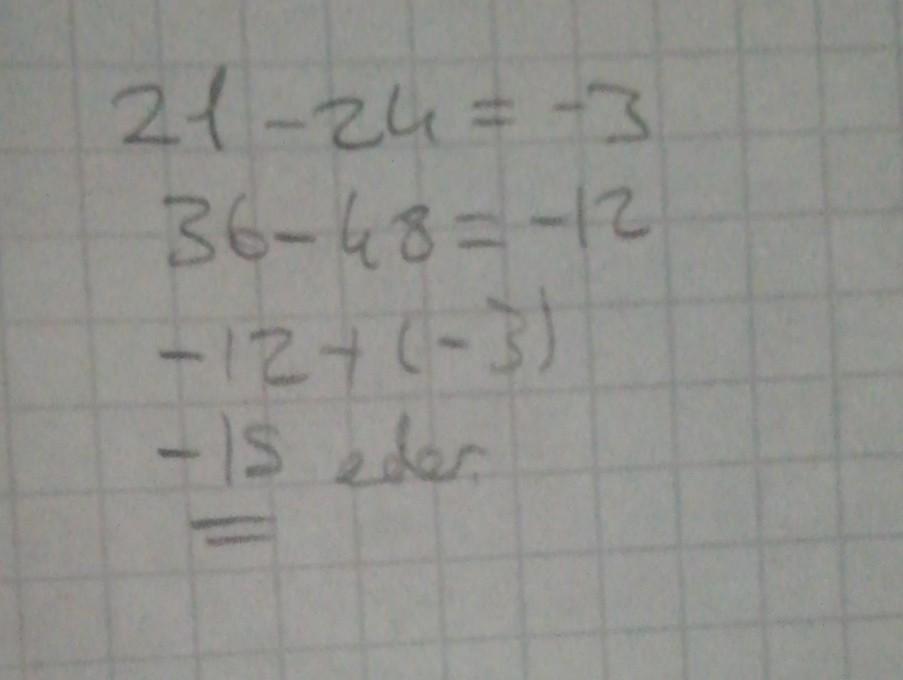 21-24=-3
36-48=-12
-12+(-3)
-15 eder.